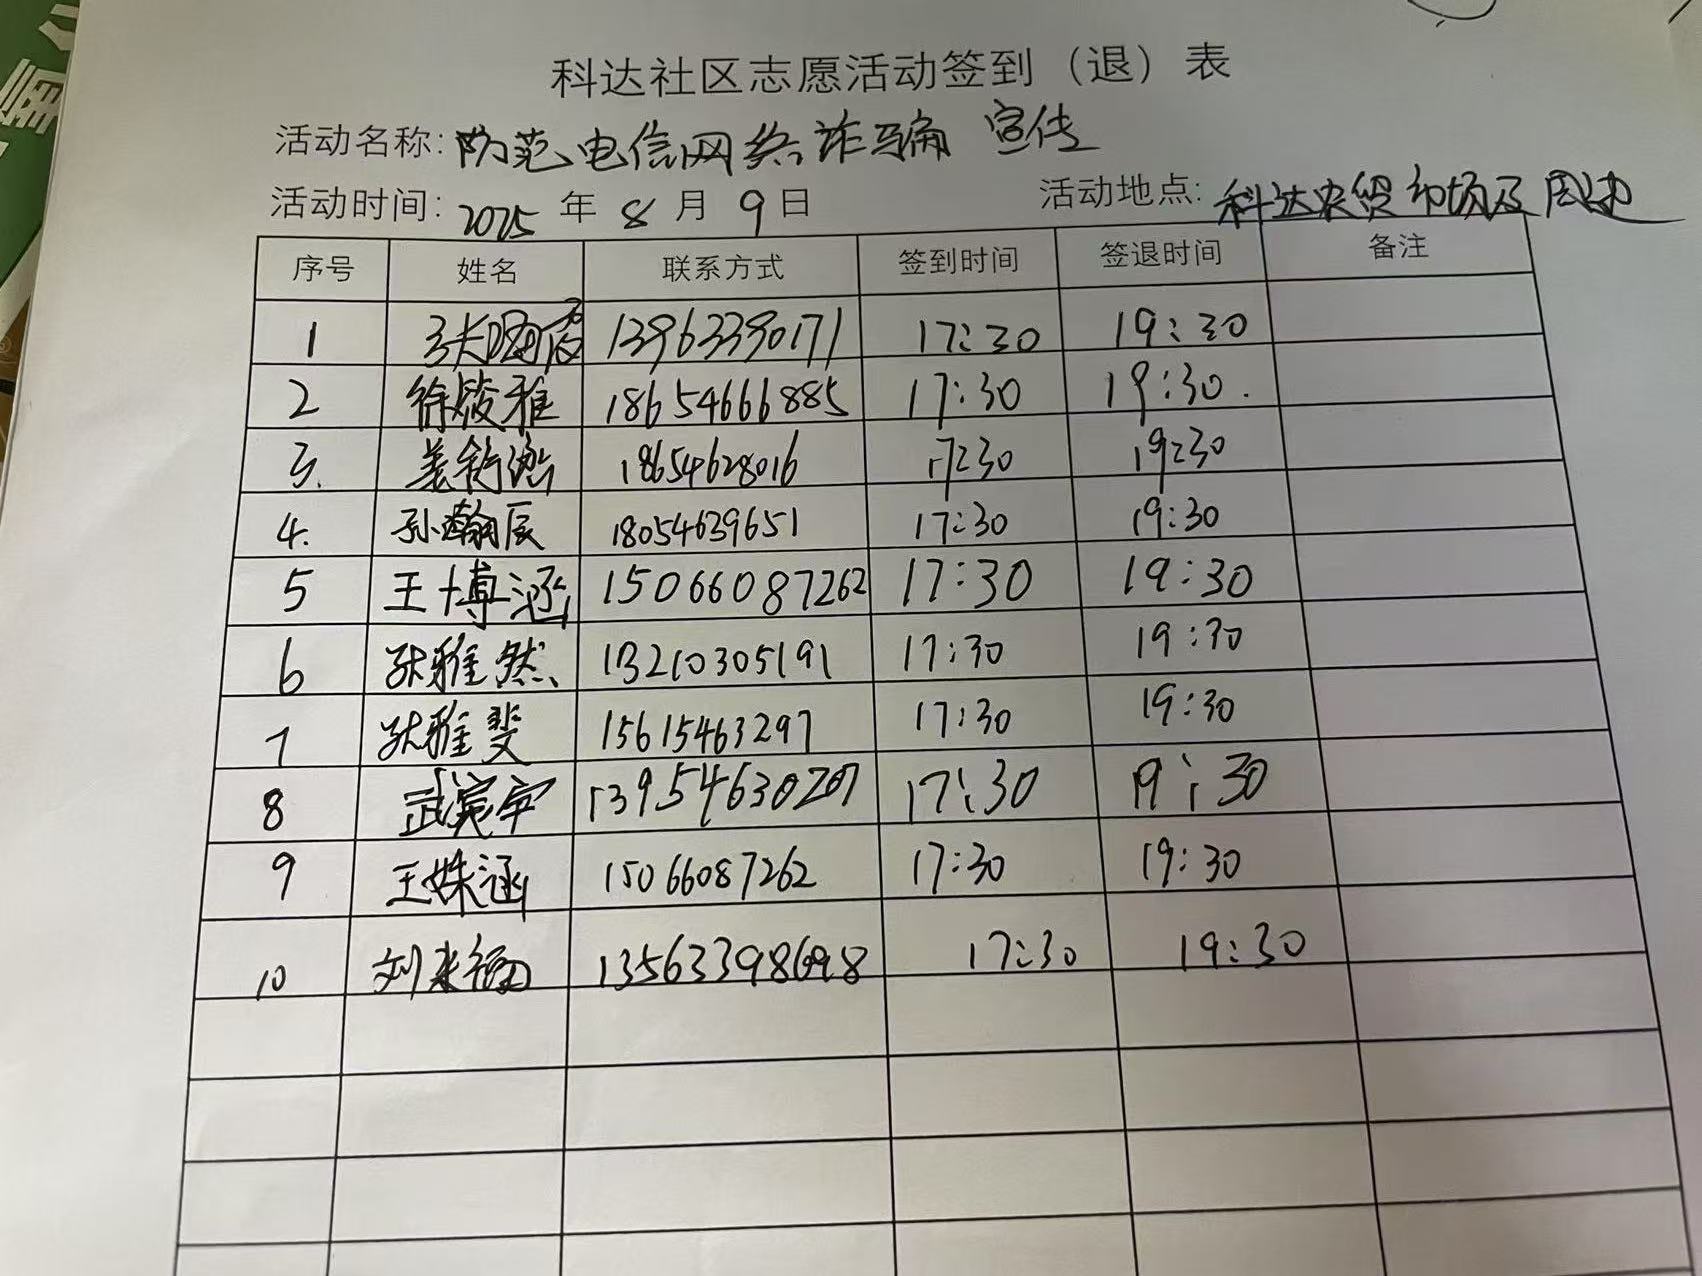 科达社区志愿活动签到（退）表
活动名称: 防范电信网络诈骗 宣传
活动时间: 2025 年 8 月 9 日 活动地点: 科达农贸市场及周边
序号 姓名 联系方式 签到时间 签退时间 备注
1 13963390171 17:30 19:30
2 徐焌雅 18654666885 17:30 19:30.
3. 姜舒涵 18654628016 17:30 19:30
4. 孙瀚辰 18054639651 17:30 19:30
5 王博涵 15066087262 17:30 19:30
6 张雅然 13210305191 17:30 19:30
7 张雅斐 15615463297 17:30 19:30
8 武寬宇 13954630207 17:30 19:30
9 王姝涵 15066087262 17:30 19:30
10 刘来福 17:30 19:30